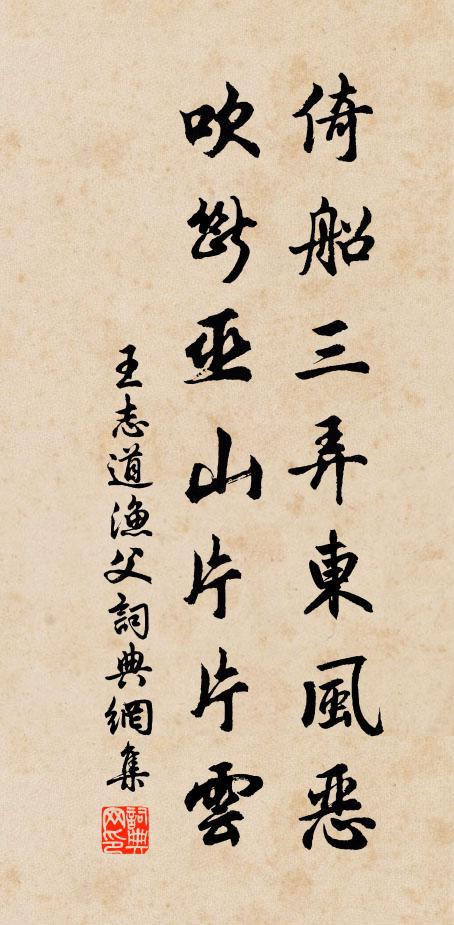 倚船三弄東風惡
吹斷巫山片片雲
王志道漁父詞典網集
詞典網印